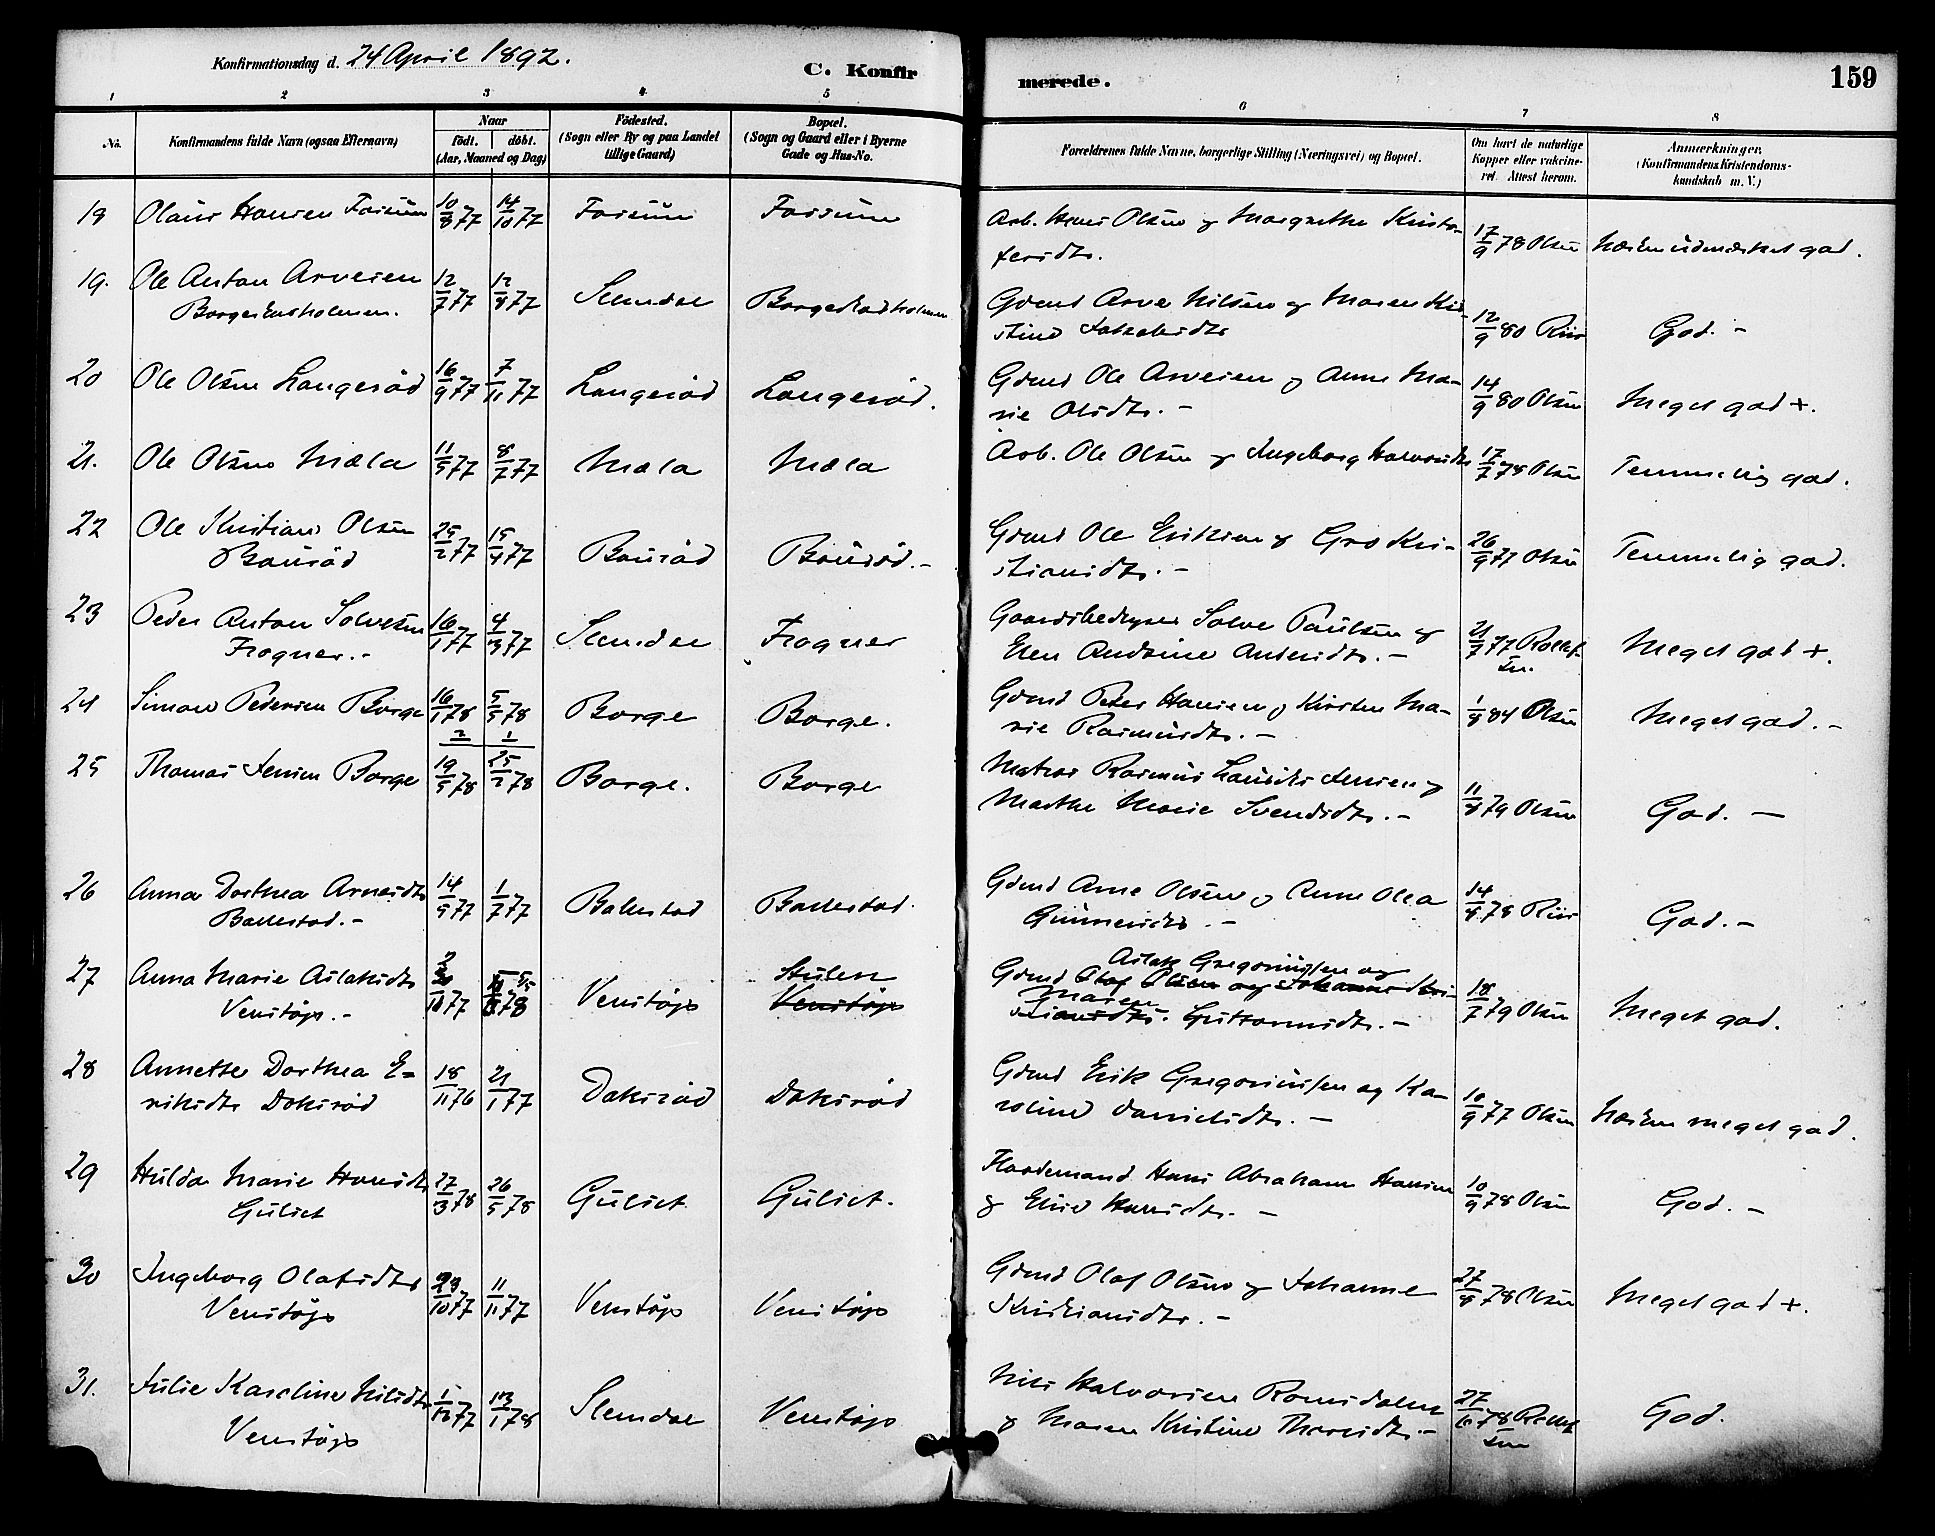 Konfirmationsdag d. 24 April 1892. C. Konfir
merede. 159
1 2 3 4 5 6 7 8
No. Konfirmandens fulde Navn (ogsaa Efternavn) Naar födt. döbt. (Aar, Maaned og Dag) Födested. (Sogn eller By og paa Landet tillige Gaard) Bopæl. (Sogn og Gaard eller i Byerne Gade og Hus-No.
Forældrenes fulde Navne, borgerlige Stilling (Næringsvei) og Bopæl. Om havt de naturlige Kopper eller vaccineret. Attest herom. Anmærkninger. (Konfirmandens Kristendomskundskab m. V.)
19 Olaus Hansen Fossum 10/8 77 14/10 77 Fossum Fossum Arb. Hans Olsen og Margrethe Kristo-
fersdtr. 17/9 78 Olsen Næsten udmærket god.
19. Ole Anton Arvesen 12/7 77 12/8 77 Slemdal Borgeskovholmen Gdmd Arve Nilsen og Maren Kri-
Borgeskovholmen. stine Jakobsdtr 12/9 80 Riis God. -
20 Ole Olsen Langeröd 16/9 77 7/11 77 Langeröd Langeröd. Gdmd Ole Arvesen og Anne Ma-
rie Olsdtr. - 14/9 80 Olsen Meget god +.
21. Ole Olsen Mæla 11/5 77 8/7 77 Mæla Mæla Arb. Ole Olsen og Ingeborg Halvorsdtr 17/7 78 Olsen Temmelig god.
22 Ole Kristian Olsen 25/2 77 15/4 77 Bausöd Bausöd. - Gdmd Ole Eriksen og Gro Kri-
Bausöd stiansdtr. - 26/9 77 Olsen Temmelig god.
23 Peder Anton Solvesen 16/1 77 4/3 77 Slemdal Frogner Gaardsbestyrer Solve Paulsen og
Frogner. - Elen Andrine Antensdtr. - 21/7 77 Rollef-
sen. Meget god +.
24 Simon Pedersen Borge 16/1 78 5/5 78 Borge Borge. Gdmd Peder Hansen og Kirsten Ma-
rie Rasmusdtr. - 1/8 84 Olsen Meget god. -
2 1
25 Thomas Jensen Borge 19/5 78 25/2 78 Borge. Borge Matros Rasmus Lauritz Jensen og
Marthe Marie Svendsdtr. - 11/8 79 Olsen God. -
26 Anna Dorthea Arnesdtr 14/5 77 1/7 77 Ballestad Ballestad. Gdmd Arne Olsen og Anne Olea
Ballestad. - Gunnersdtr. - 14/8 78 Riis God. -
27 Anna Marie Aslaksdtr 2/10 77 78 Venstöp Stulen
Venstöp Gdmd Aslak Gregoriussen og
Olaf Olsen og Johanne Kri-
Venstöp. - Maren
stiansdtr. Guttormsdtr. - 18/7 79 Olsen Meget god.
28 Annette Dorthea E- 18/11 76 21/1 77 Doksröd Doksröd Gdmd Erik Gregoriussen og Ka-
riksdtr Doksröd roline Danielsdtr. - 10/9 77 Olsen Næsten meget god.
29 Hulda Marie Hansdtr 27/3 78 26/5 78 Gulset Gulset. Flødemand Hans Abraham Hansen
Gulset og Elise Hansdtr. - 10/9 78 Olsen God. -
30 Ingeborg Olafsdtr 29/10 77 11/11 77 Venstöp Venstöp Gdmd Olaf Olsen og Johanne
Venstöp Kristiansdtr. - 27/8 78 Olsen Meget god +.
31. Julie Karoline Nilsdtr 1/12 77 13/1 78 Slemdal Venstöp Nils Halvorsen Romsdalen
Venstöp og Maren Kristine Thoresdtr. - 27/6 78 Rollef
sen God.